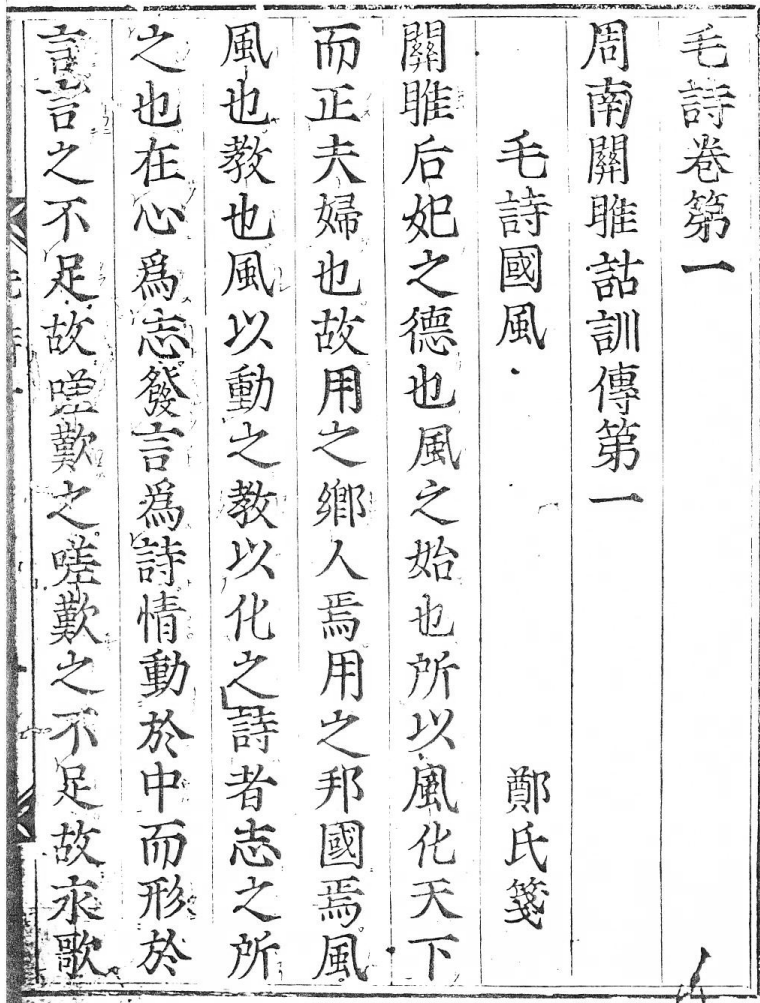 毛詩卷第一
周南關雎詁訓傳第一
毛詩國風 鄭氏箋
關雎后妃之德也風之始也所以風化天下
而正夫婦也故用之鄉人焉用之邦國焉風
風也教也風以動之教以化之詩者志之所
之也在心爲志發言爲詩情動於中而形於
言言之不足故嗟歎之嗟歎之不足故永歌